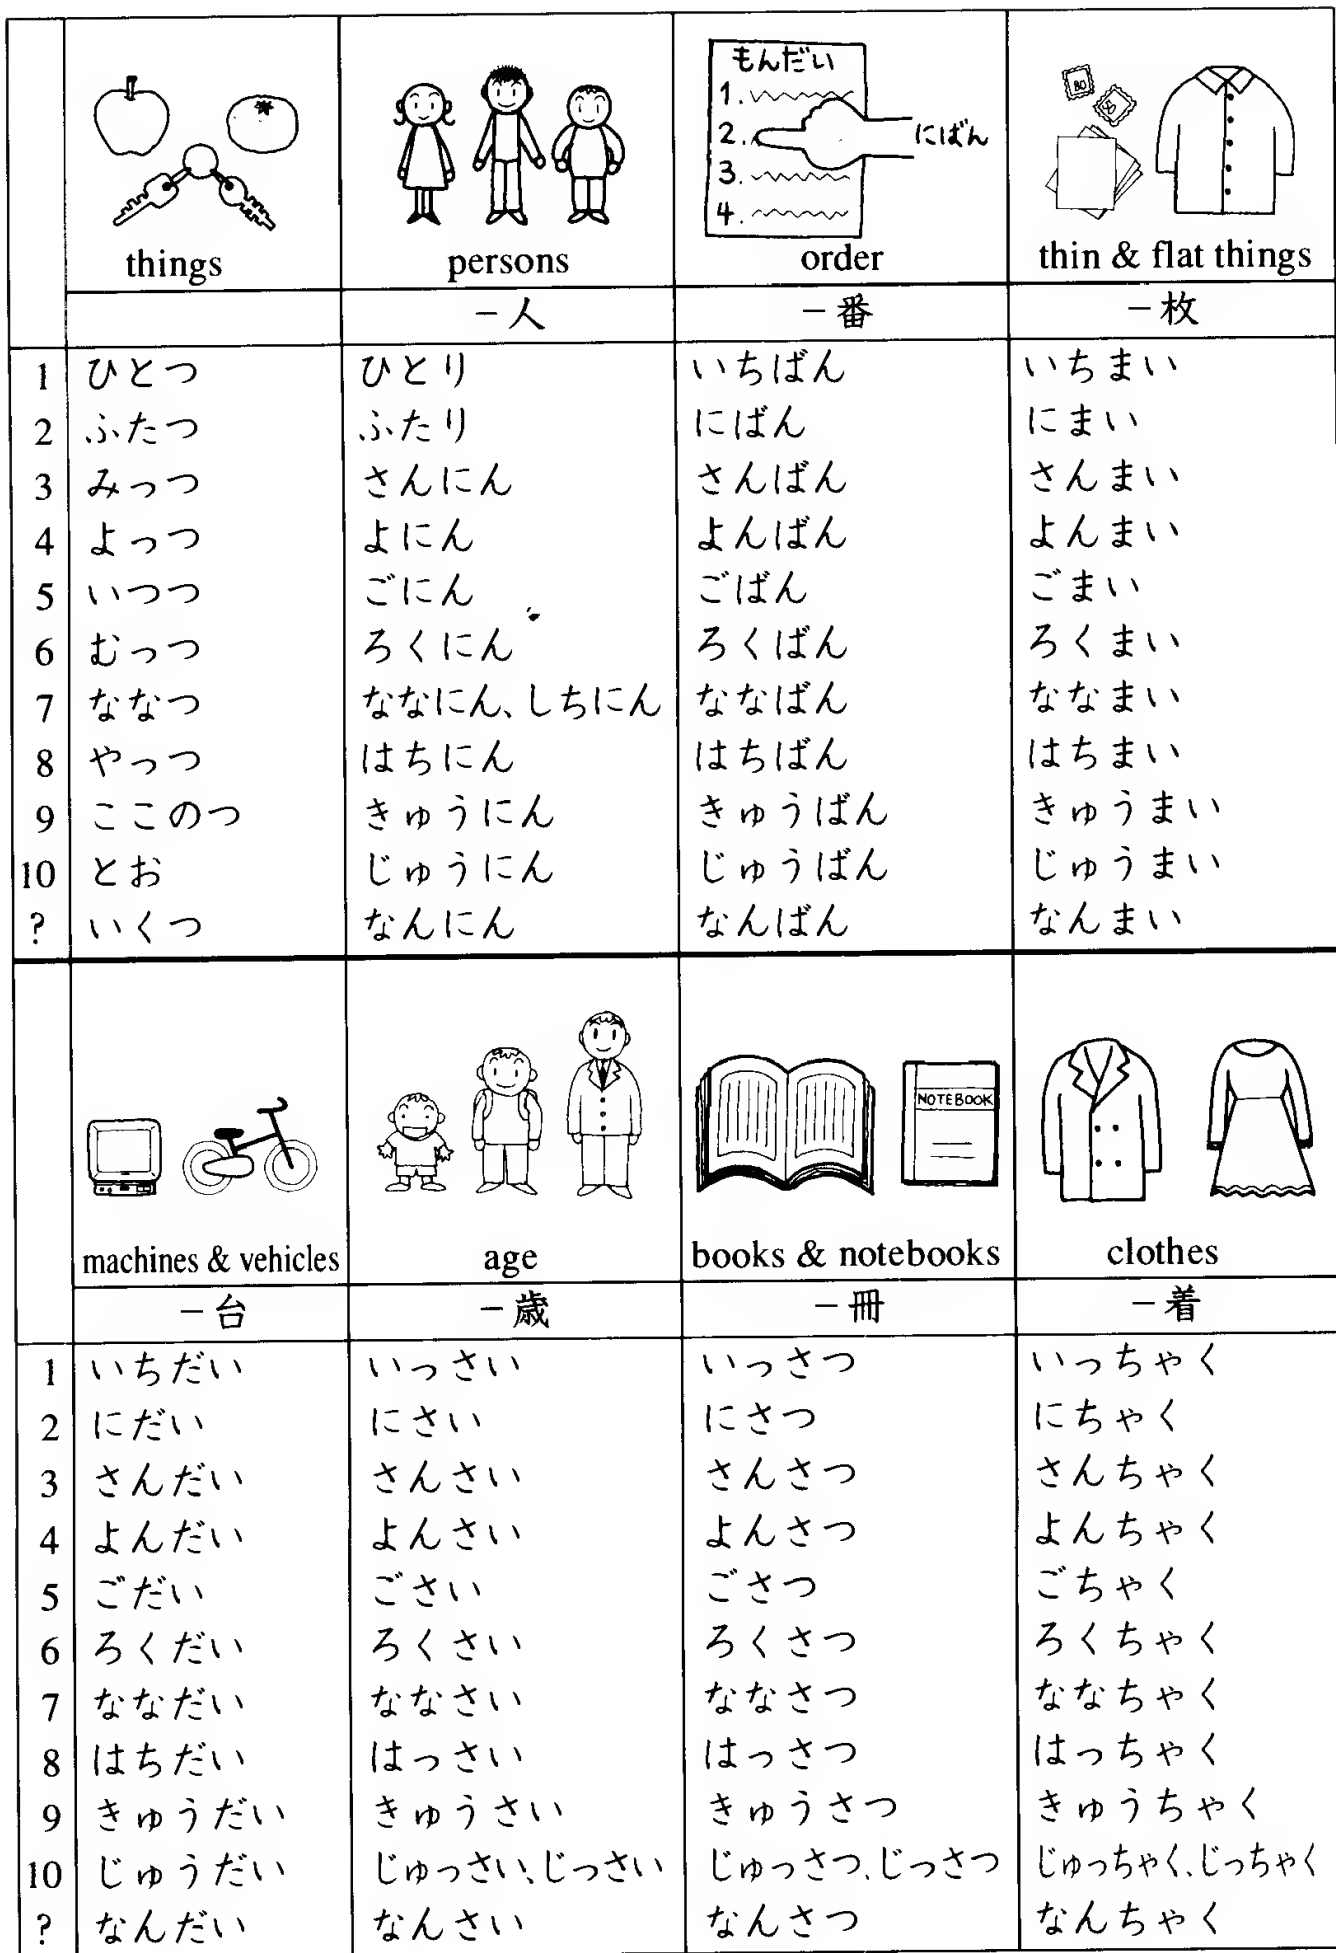 もんだい
1.
2.
3.
4.
にばん
things persons order thin & flat things
－人 －番 －枚
1 ひとつ ひとり いちばん いちまい
2 ふたつ ふたり にばん にまい
3 みっつ さんにん さんばん さんまい
4 よっつ よにん よんばん よんまい
5 いつつ ごにん ごばん ごまい
6 むっつ ろくにん ろくばん ろくまい
7 ななつ ななにん、しちにん ななばん ななまい
8 やっつ はちにん はちばん はちまい
9 ここのつ きゅうにん きゅうばん きゅうまい
10 とお じゅうにん じゅうばん じゅうまい
? いくつ なんにん なんばん なんまい
NOTEBOOK
machines & vehicles age books & notebooks clothes
－台 －歳 －冊 －着
1 いちだい いっさい いっさつ いっちゃく
2 にだい にさい にさつ にちゃく
3 さんだい さんさい さんさつ さんちゃく
4 よんだい よんさい よんさつ よんちゃく
5 ごだい ごさい ごさつ ごちゃく
6 ろくだい ろくさい ろくさつ ろくちゃく
7 ななだい ななさい ななさつ ななちゃく
8 はちだい はっさい はっさつ はっちゃく
9 きゅうだい きゅうさい きゅうさつ きゅうちゃく
10 じゅうだい じゅっさい、じっさい じゅっさつ、じっさつ じゅっちゃく、じっちゃく
? なんだい なんさい なんさつ なんちゃく